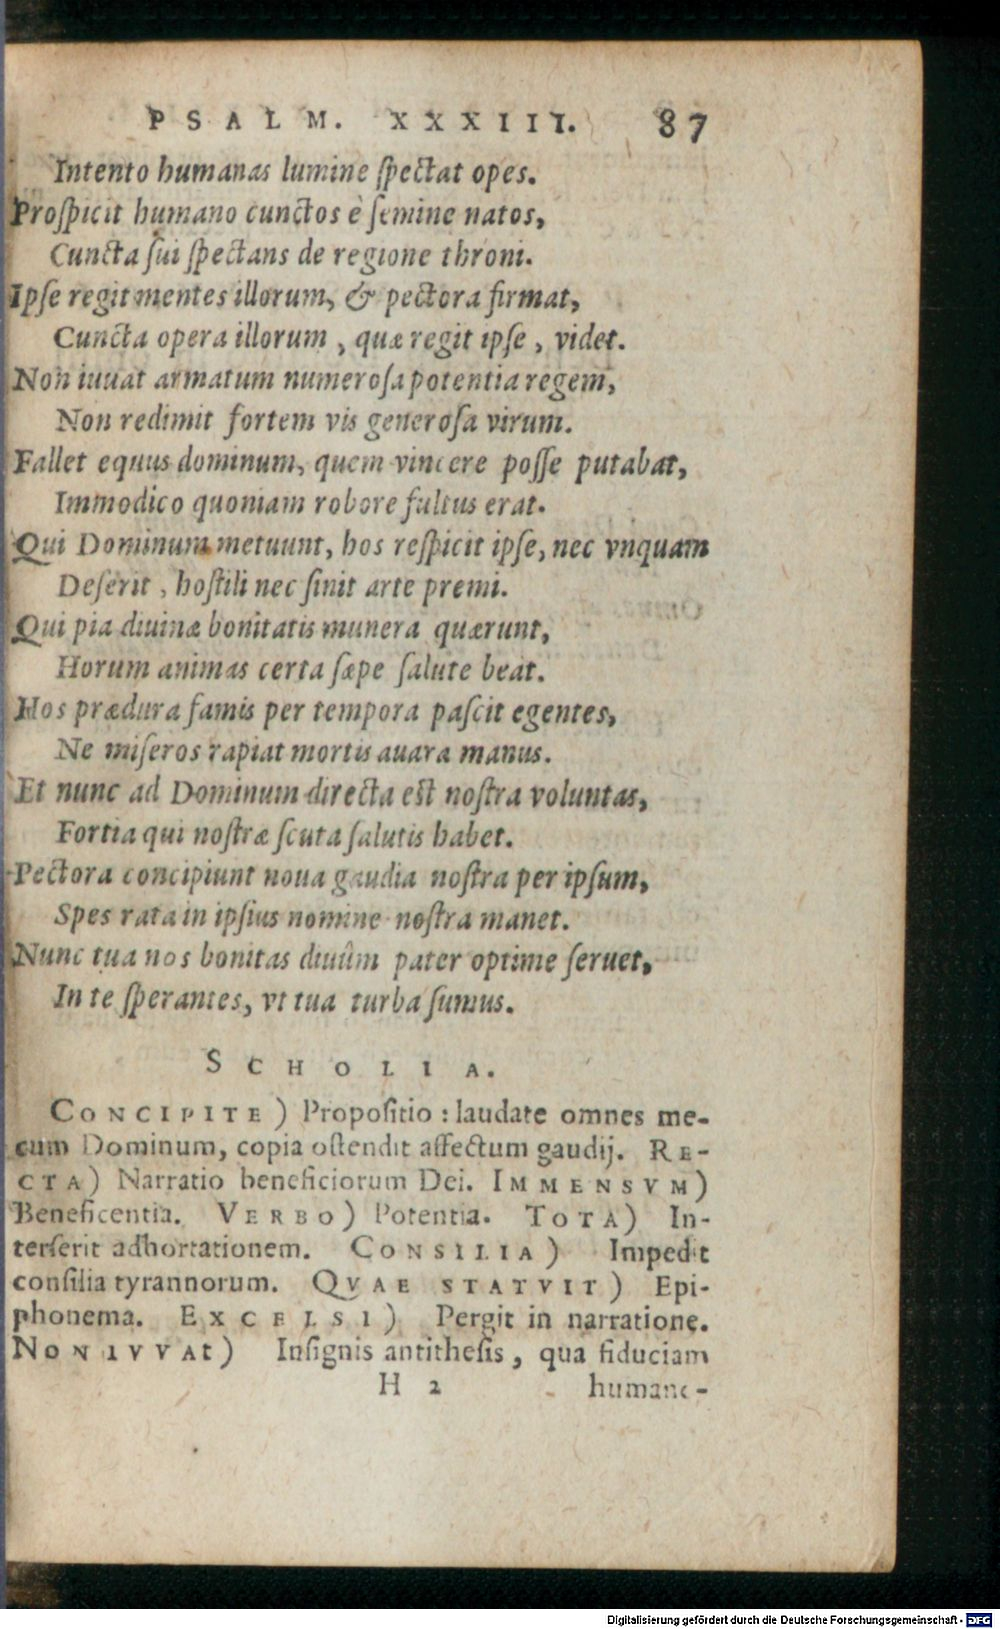 PSALM. XXXIII. 87
Intento humanas lumine ſpectat opes.
Proſpicit humano cunctos è ſemine natos,
Cuncta ſui ſpectans de regione throni.
Ipſe regit mentes illorum, & pectora firmat,
Cuncta opera illorum, quæ regit ipſe, videt.
Non iuuat armatum numeroſa potentia regem,
Non redimit fortem vis generoſa virum.
Fallet equus dominum, quem vincere poſſe putabat,
Immodico quoniam robore fultus erat.
Qui Dominum metuunt, hos reſpicit ipſe, nec vnquam
Deſerit, hoſtili nec ſinit arte premi.
Qui pia diuinæ bonitatis munera quærunt,
Horum animas certa ſæpe ſalute beat.
Hos prædura famis per tempora paſcit egentes,
Ne miſeros rapiat mortis auara manus.
Et nunc ad Dominum directa eſt noſtra voluntas,
Fortia qui noſtræ ſcuta ſalutis habet.
Pectora concipiunt noua gaudia noſtra per ipſum,
Spes rata in ipſius nomine noſtra manet.
Nunc tua nos bonitas diuûm pater optime ſeruet,
In te ſperantes, vt tua turba ſumus.
SCHOLIA.
CONCIPITE) Propoſitio: laudate omnes me-
cum Dominum, copia oſtendit affectum gaudij. RE-
CTA) Narratio beneficiorum Dei. IMMENSVM)
Beneficentia. VERBO) Potentia. TOTA) In-
terſerit adhortationem. CONSILIA) Impedit
conſilia tyrannorum. QVAE STATVIT) Epi-
phonema. EXCELSI) Pergit in narratione.
NON IVVAt) Inſignis antitheſis, qua fiduciam
H 2 humane-
Digitalisierung gefördert durch die Deutsche Forschungsgemeinschaft - DFG